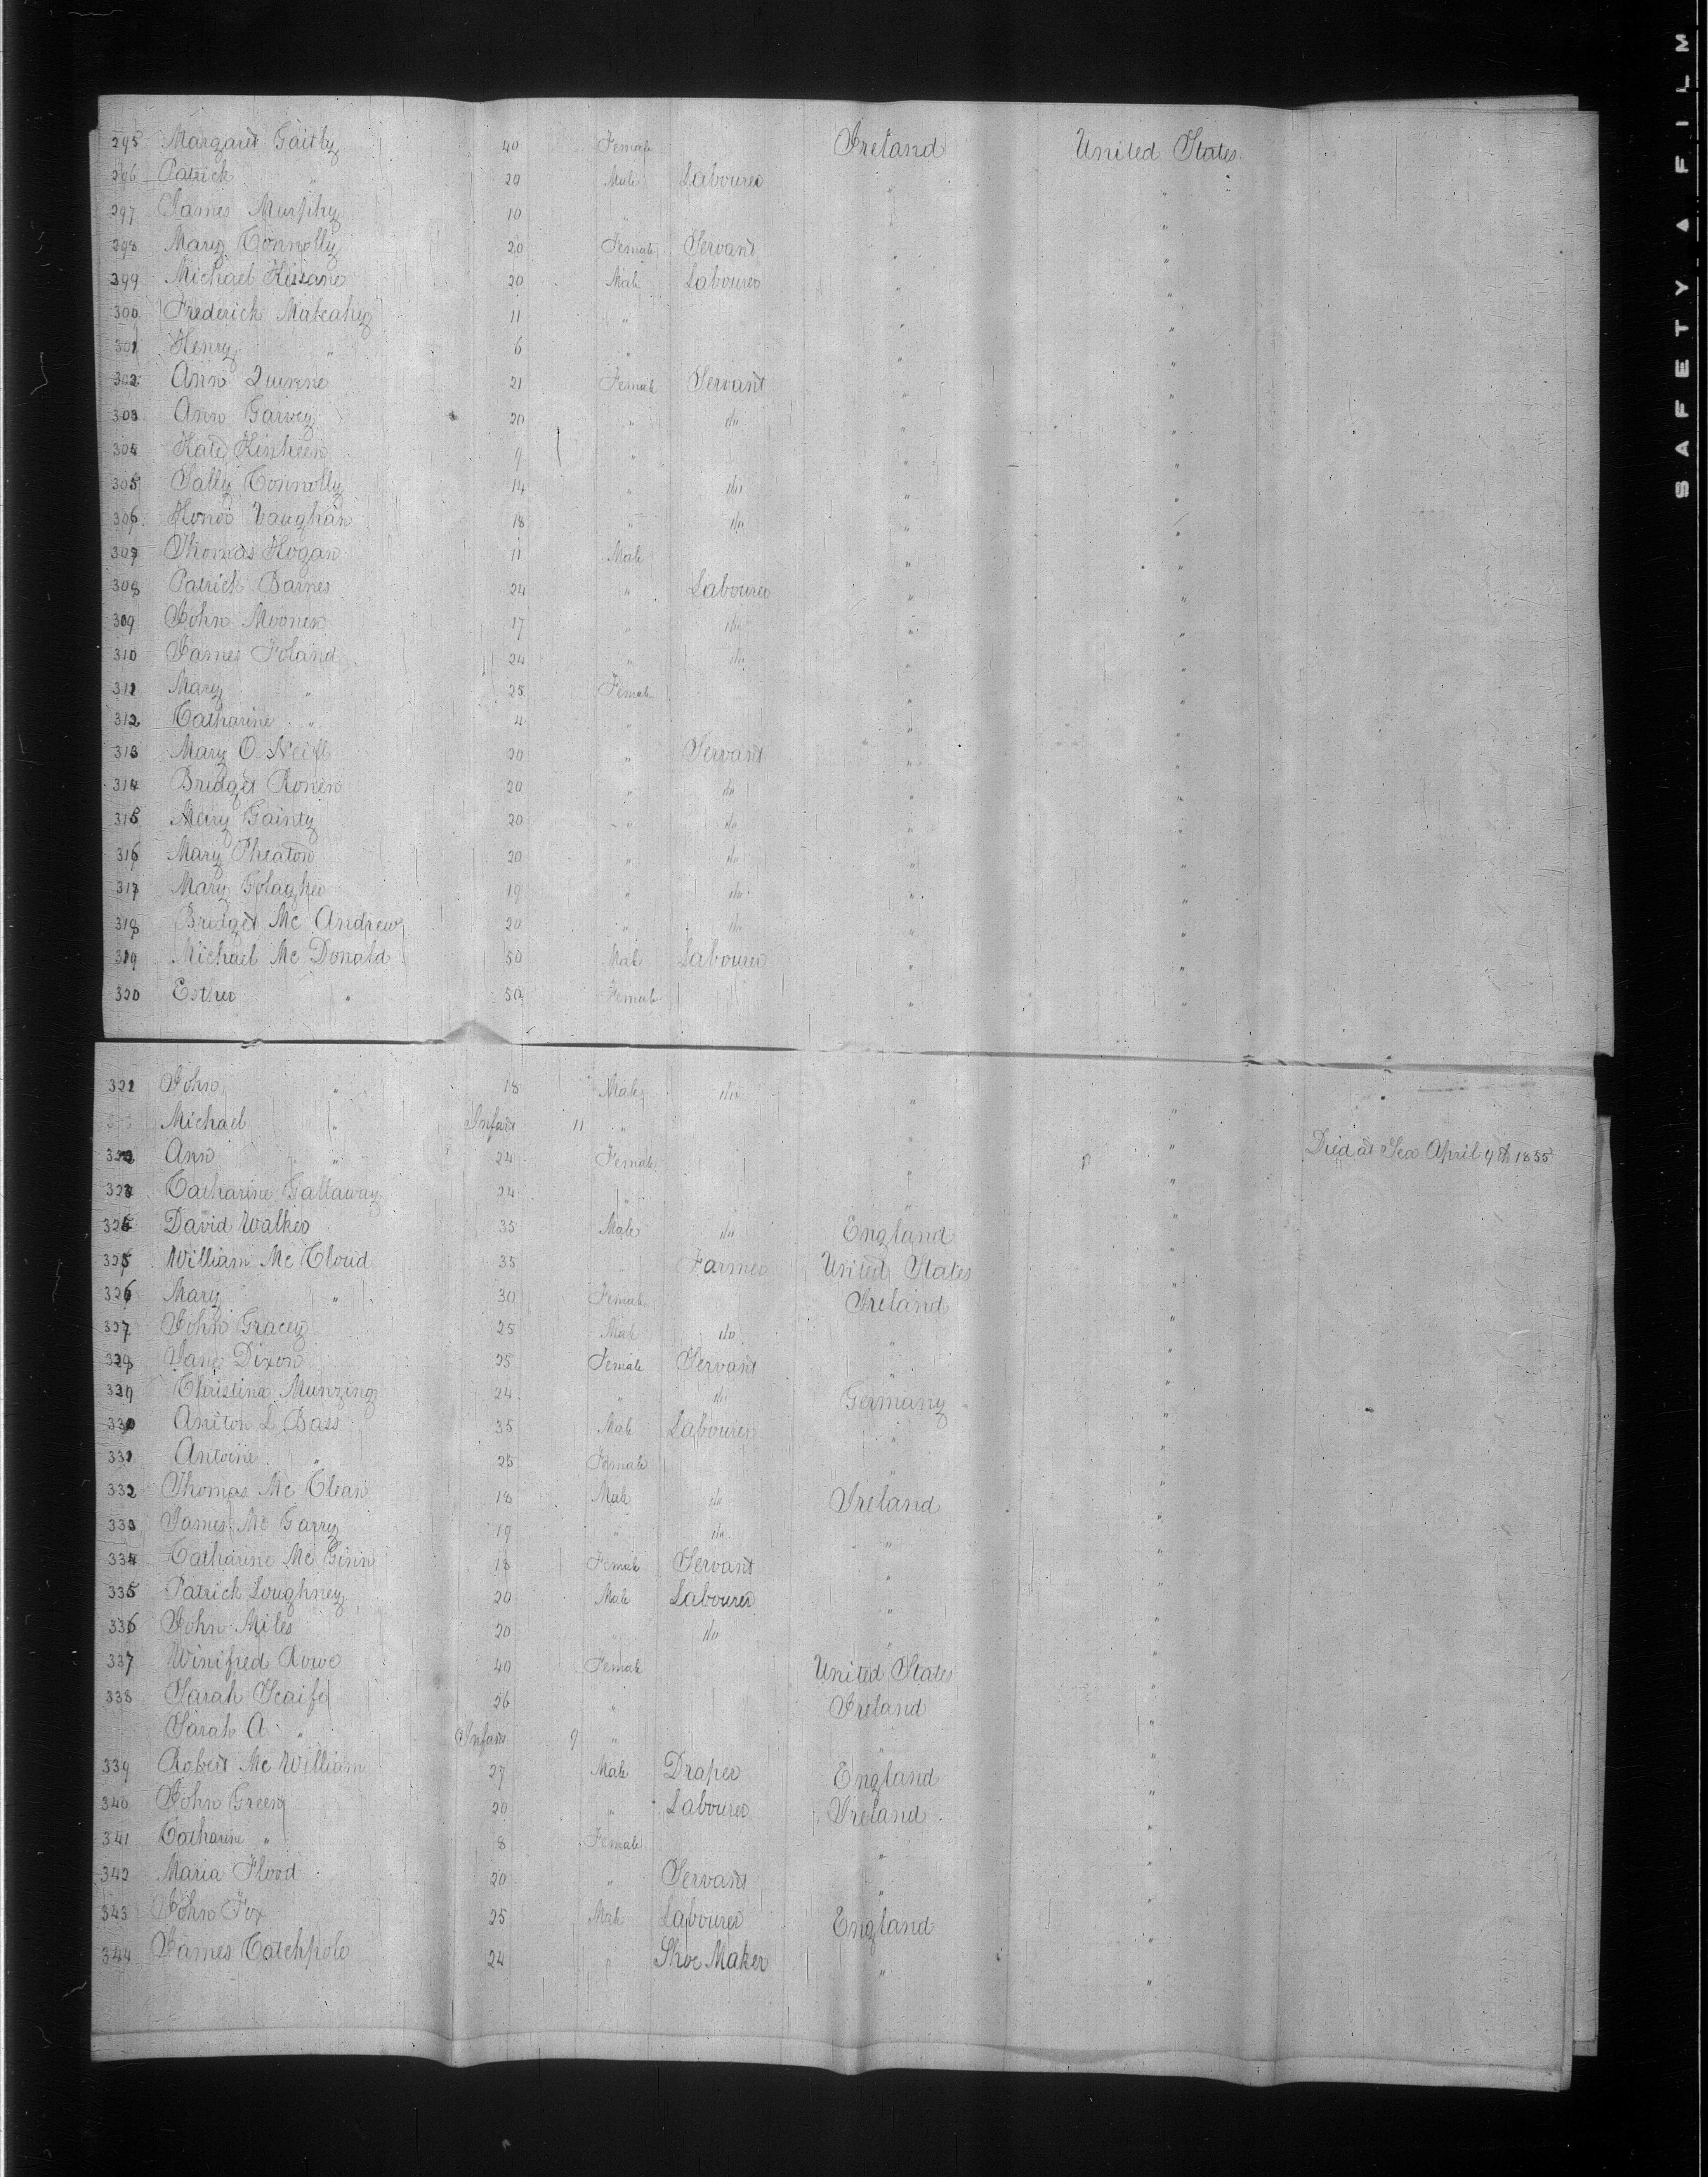 295 Margaret Gaithy 40 Female Ireland United States
296 Patrick " 20 Male Labourer " "
297 James Murphy 10 " " "
298 Mary Connolly 20 Female Servant " "
299 Michael Kissane 20 Male Labourer " "
300 Frederick Malcahy 11 " " "
301 Henry " 6 " " "
302 Ann 21 Female Servant " "
303 Ann Garvey 20 " do " "
304 Kate 9 " " "
305 Sally Connolly 14 " do " "
306 Honor Vaughan 18 " do " "
307 Thomas Hogan 11 Male " "
308 Patrick Barnes 24 " Labourer " "
309 John Moonen 17 " do " "
310 James Foland 24 " do " "
311 Mary " 25 Female " "
312 Catharine " 4 " " "
313 Mary O Neill 20 " Servant " "
314 Bridget Ronen 20 " do " "
315 Mary Gainty 20 " do " "
316 Mary Pheaton 20 " do " "
317 Mary Golagher 19 " do " "
318 Bridget Mc Andrew 20 " do " "
319 Michael Mc Donald 50 Male Labourer " "
320 Esther " 50 Female " "
321 John " 18 Male do " "
Michael " Infant 11 " " "
322 Ann " 24 Female " " Died at Sea April 9th 1855
323 Catharine Gallaway 24 " " "
324 David Walker 35 Male do England "
325 William Mc Cloud 35 " Farmer United States "
326 Mary " 30 Female Ireland "
327 John Gracey 25 Male do " "
328 Jane Dixon 25 Female Servant " "
329 Christina Munzing 24 " do Germany "
330 Aniton L Bass 35 Male Labourer " "
331 Antoine " 25 Female " "
332 Thomas Mc Clean 18 Male do Ireland "
333 James Mc Garry 19 " do " "
334 Catharine Mc Ginn 18 Female Servant " "
335 Patrick Loughney 20 Male Labourer " "
336 John Miles 20 " do " "
337 Winifred Rowe 40 Female United States "
338 Sarah Scaife 26 " Ireland "
Sarah A " Infant 9 " " "
339 Robert Mc William 27 Male Draper England "
340 John Green 20 " Labourer Ireland "
341 Catharine " 8 Female " "
342 Maria Flood 20 " Servant " "
343 John Fox 25 Male Labourer England "
344 James Catchpole 24 " Shoe Maker " "
SAFETY ▲ FILM